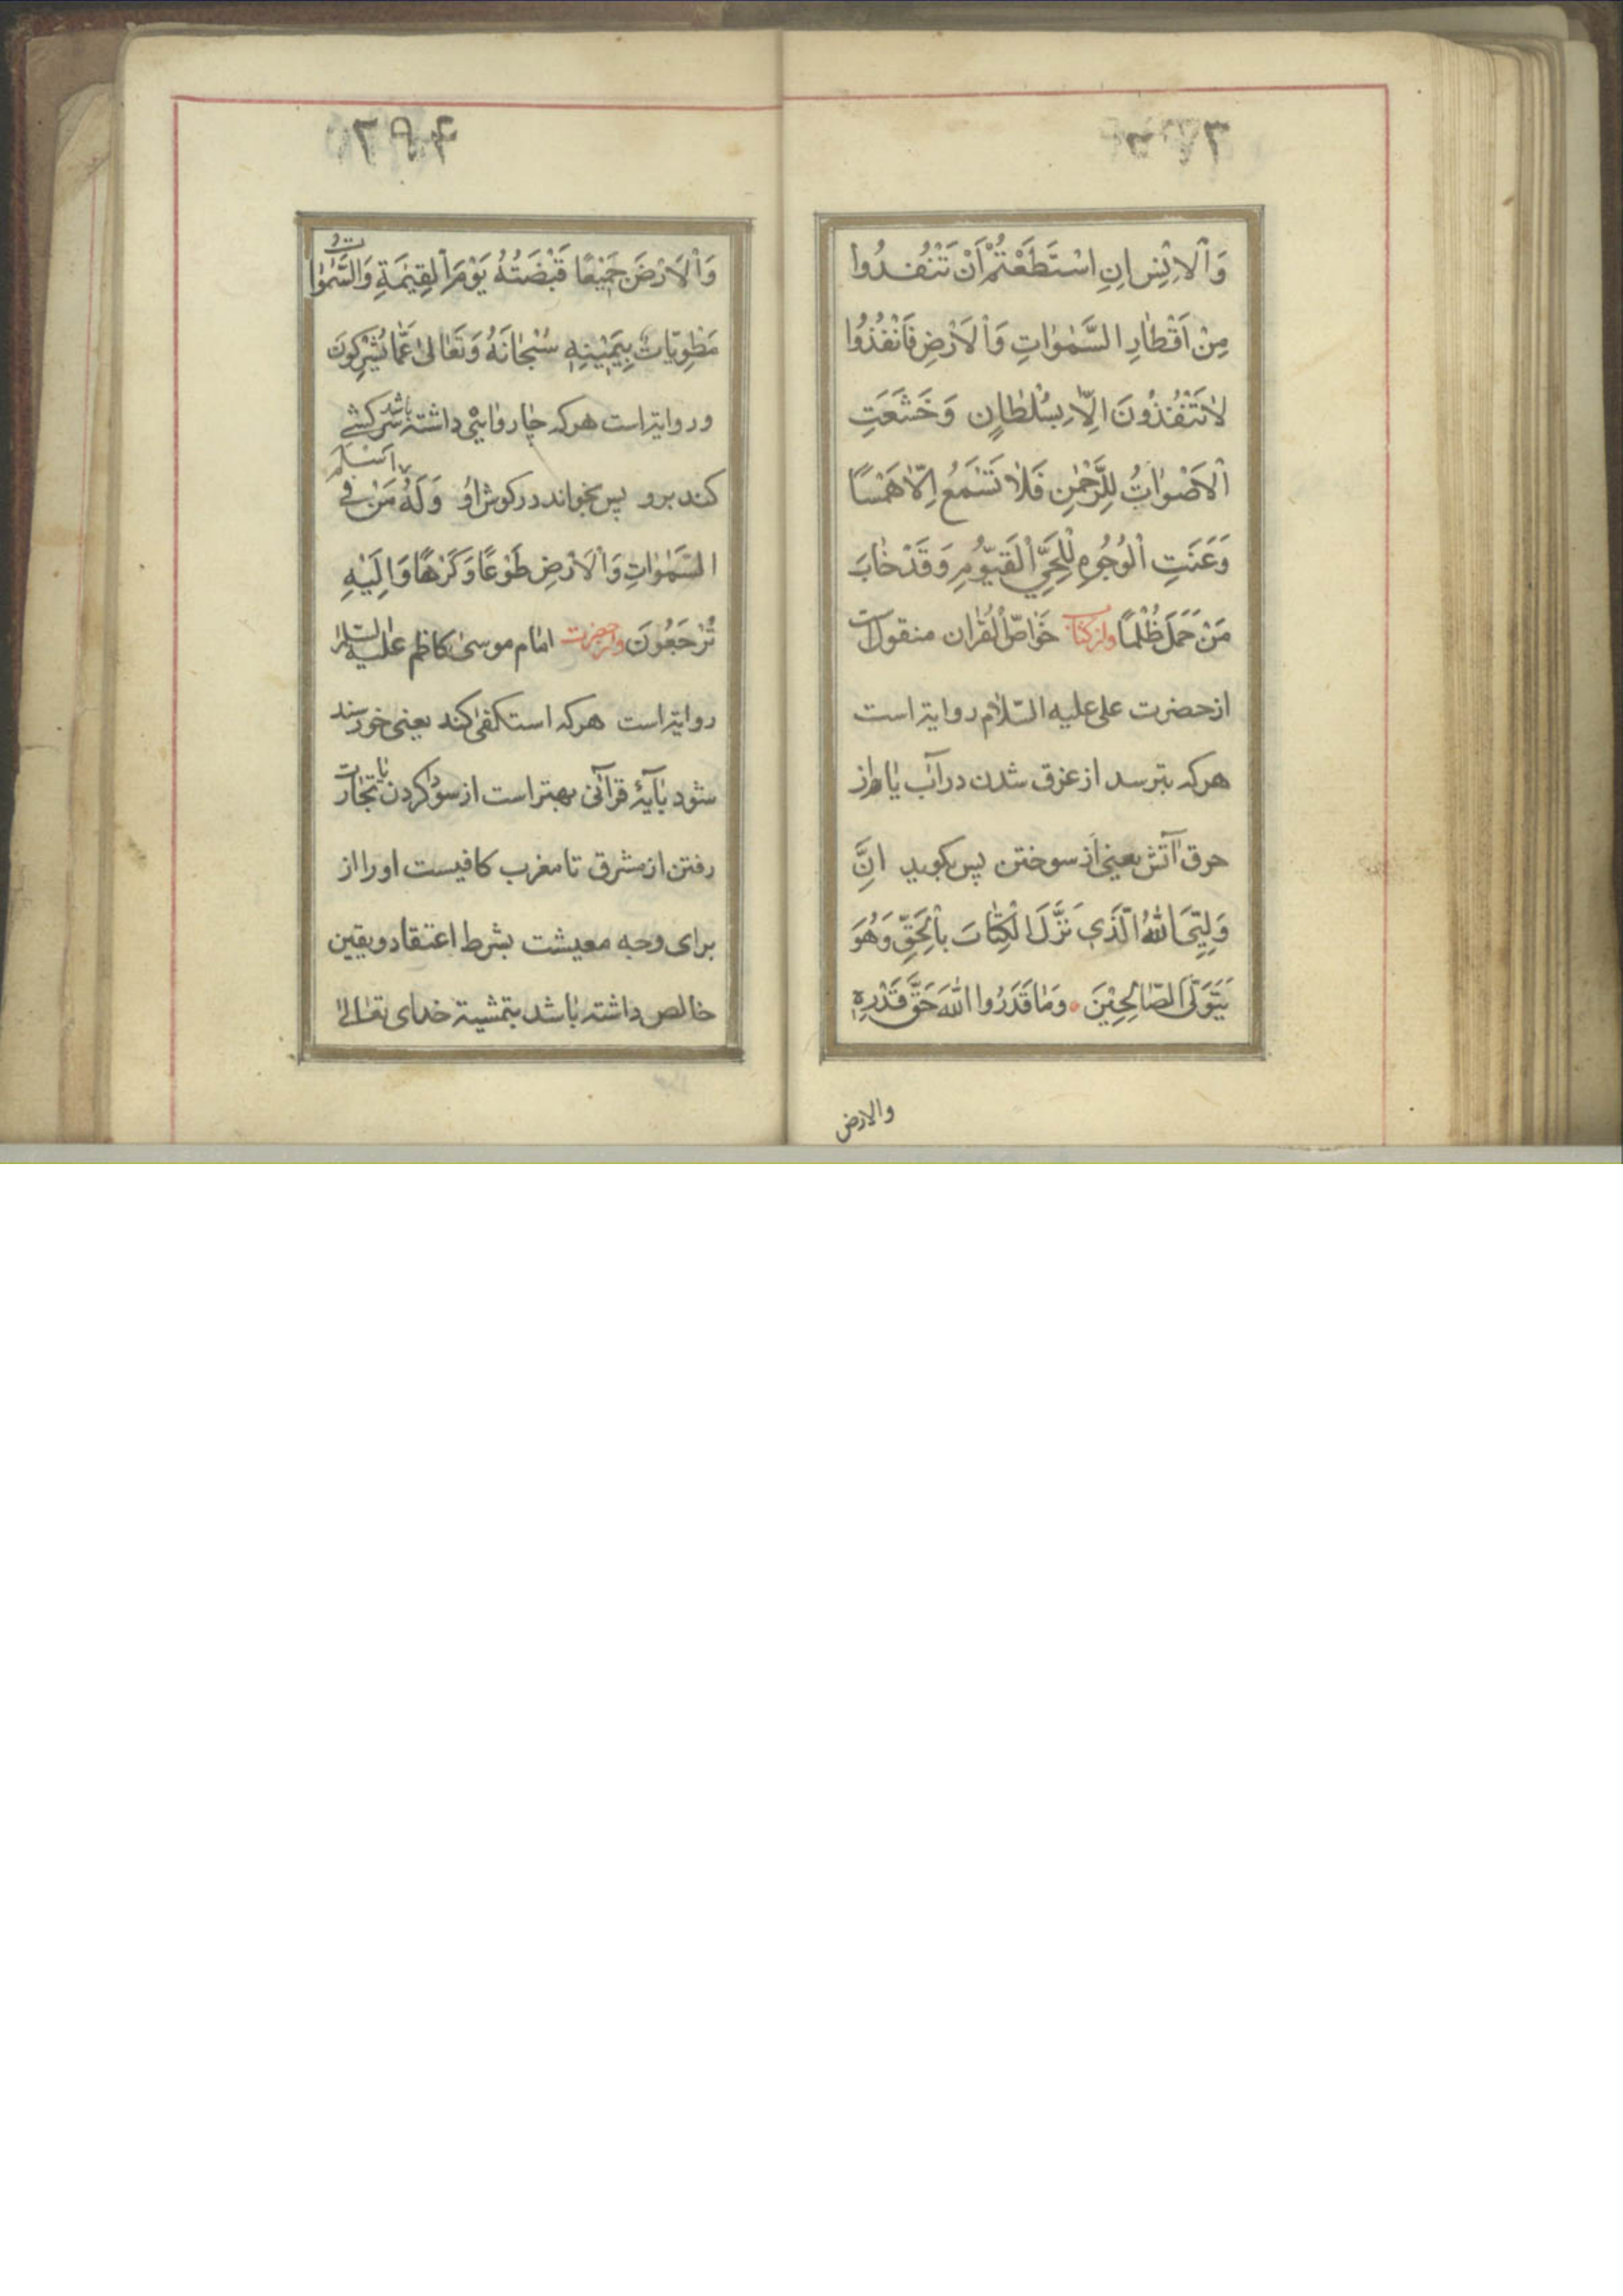 وَالْاِنْسِ اِنِ اسْتَطَعْتُمْ اَنْ تَنْفُدُوا
مِنْ اَقْطَارِ السَّمٰوٰاتِ وَالْاَرْضِ فَانْفُذُوا
لٰا تَنْفُذُونَ اِلّٰا بِسُلْطٰانٍ وَخَشَعَتِ
الْاَصْوٰاتُ لِلرَّحْمٰنِ فَلٰا تَسْمَعُ اِلّٰا هَمْسًا
وَعَنَتِ الْوُجُوهِ لِلْحَيِّ الْقَيُّومِ وَقَدْ خٰابَ
مَنْ حَمَلَ ظُلْمًا واز كتاب خَوٰاصّ الْقُرٰان منقول است
از حضرت على عليه السّلام رواية است
هركه بترسد از غرق شدن در آب يا از
حرق آتش يعنى از سوختن پس بكويد اِنَّ
وَلِيِّيَ اللّٰهُ الَّذَي نَزَّلَ الْكِتٰابَ بِالْحَقِّ وَهُوَ
يَتَوَلَّى الصّٰالِحِيْنَ وَمٰا قَدَرُوا اللّٰهَ حَقَّ قَدْرِهِ
والارض
وَالْاَرْضَ جَمْيعًا قَبْضَتُهُ يَوْمَ الْقِيٰمَةِ وَالسَّمٰوٰاتُ
مَطْوِيّٰاتٌ بِيَمْيٖنِهٖ سُبْحٰانَهُ وَتَعٰالىٰ عَمّٰا يُشْرِكُونَ
ورواية است هركه چاروائى داشته باشد سركشے
كند برو پس بخواند در كوش او وَلَهُ اَسْلَمَ مَنْ فِي
السَّمٰوٰاتِ وَالْاَرْضِ طَوْعًا وَكَرْهًا وَاِلَيْهِ
تُرْجَعُونَ واز حضرت امام موسى كاظم عليه السّلام
رواية است هركه استكفى كند يعنى خورسند
شود بآيۀ قرآنى بهتر است از سود كردن يا تجارت
رفتن از مشرق تا مغرب كافيست او را از
براى وجه معيشت بشرط اعتقاد ويقين
خالص داشته باشد بتمشية خداى تعالى